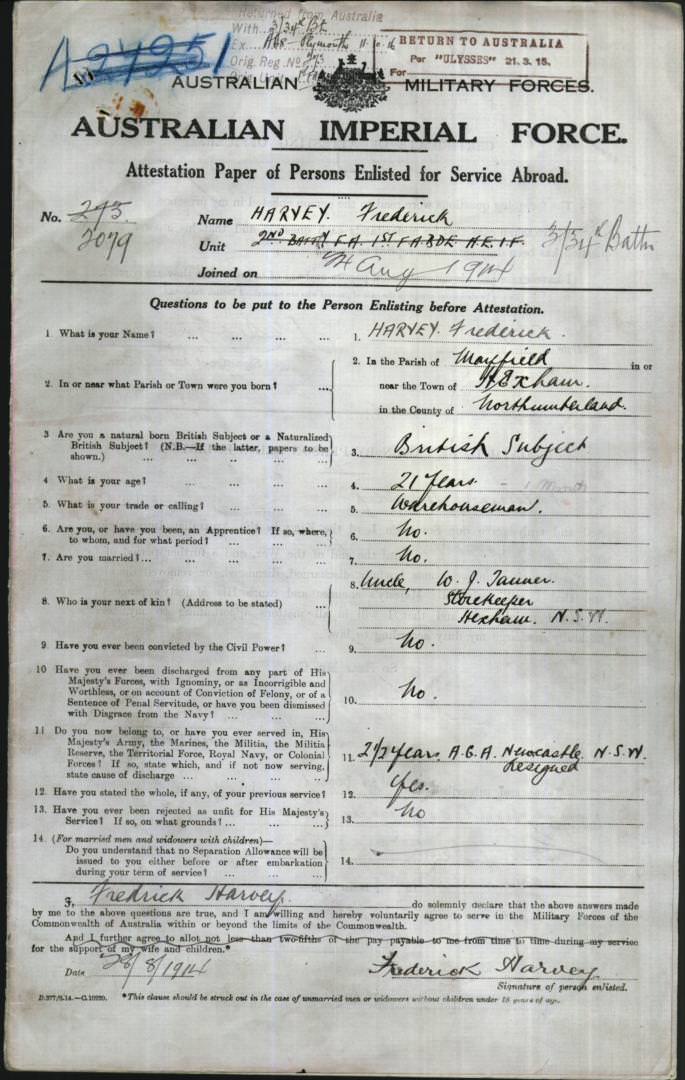 A 24251
Returned from Australia
With 3/34th Bt
Ex Plymouth 11.10.16
Orig. Reg. No.
Orig. Unit
RETURN TO AUSTRALIA
Per "ULYSSES" 21.3.15.
For
AUSTRALIAN MILITARY FORCES.
AUSTRALIAN IMPERIAL FORCE.
Attestation Paper of Persons Enlisted for Service Abroad.
No. 245
2079
Name HARVEY. Frederick
Unit 2ND BATTY F.A. 1ST F.A. BDE. A.E.I.F. 3/34th Battn
Joined on Aug 1914
Questions to be put to the Person Enlisting before Attestation.
1. What is your Name? ... ... ... ...
1. HARVEY. Frederick.
2. In or near what Parish or Town were you born? ...
2. In the Parish of Mayfield in or
near the Town of Hexham.
in the County of Northumberland.
3 Are you a natural born British Subject or a Naturalized
British Subject? (N.B.—If the latter, papers to be
shown.) ... ... ... ... ...
3. British Subject
4 What is your age? ... ... ... ...
4. 21 Years - 1 Month
5. What is your trade or calling? ... ... ...
5. Warehouseman.
6. Are you, or have you been, an Apprentice? If so, where,
to whom, and for what period? ... ... ...
6. No.
7. Are you married?... ... ... ... ...
7. No.
8. Who is your next of kin? (Address to be stated) ...
8. Uncle, W. J. Tanner.
Storekeeper
Hexham. N.S.W.
9. Have you ever been convicted by the Civil Power? ...
9. No.
10 Have you ever been discharged from any part of His
Majesty's Forces, with Ignominy, or as Incorrigible and
Worthless, or on account of Conviction of Felony, or of a
Sentence of Penal Servitude, or have you been dismissed
with Disgrace from the Navy? ... ... ...
10. No.
11 Do you now belong to, or have you ever served in, His
Majesty's Army, the Marines, the Militia, the Militia
Reserve, the Territorial Force, Royal Navy, or Colonial
Forces? If so, state which, and if not now serving,
state cause of discharge ... ... ... ...
11. 2 1/2 Years A.G.A. Newcastle N.S.W.
Resigned
12. Have you stated the whole, if any, of your previous service?
12. Yes.
13. Have you ever been rejected as unfit for His Majesty's
Service? If so, on what grounds? ... ... ...
13. No
14. (For married men and widowers with children)—
Do you understand that no Separation Allowance will be
issued to you either before or after embarkation
during your term of service? ... ... ...
14.
I, Fredrick Harvey. do solemnly declare that the above answers made
by me to the above questions are true, and I am willing and hereby voluntarily agree to serve in the Military Forces of the
Commonwealth of Australia within or beyond the limits of the Commonwealth.
And I further agree to allot not less than two-fifths of the pay payable to me from time to time during my service
for the support of my wife and children.*
Date 28/8/1914
Frederick Harvey
Signature of person enlisted.
D.377/8.14.—C.10220.
*This clause should be struck out in the case of unmarried men or widowers without children under 18 years of age.